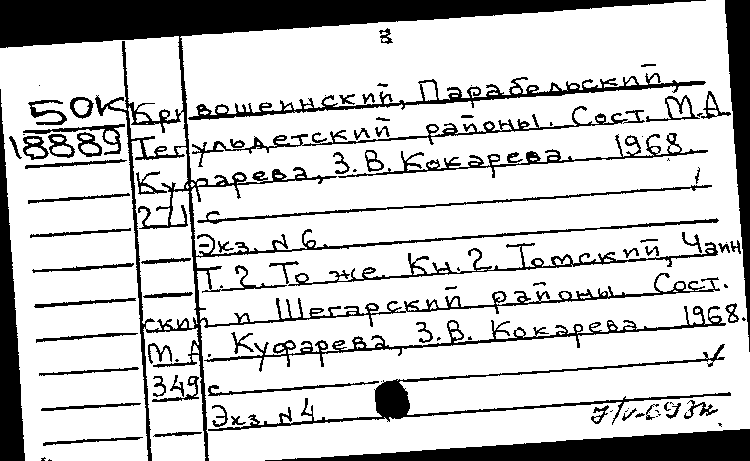 50К Кривошеинский, Парабельский,
18889 Тегульдетский районы. Сост. М.А.
Куфарева, З.В. Кокарева. 1968.
271 с
Экз. N 6.
Т. 2. То же. Кн. 2. Томский, Чаин
ский и Шегарский районы. Сост.
М.А. Куфарева, З.В. Кокарева. 1968.
349 с.
Экз. N 4.